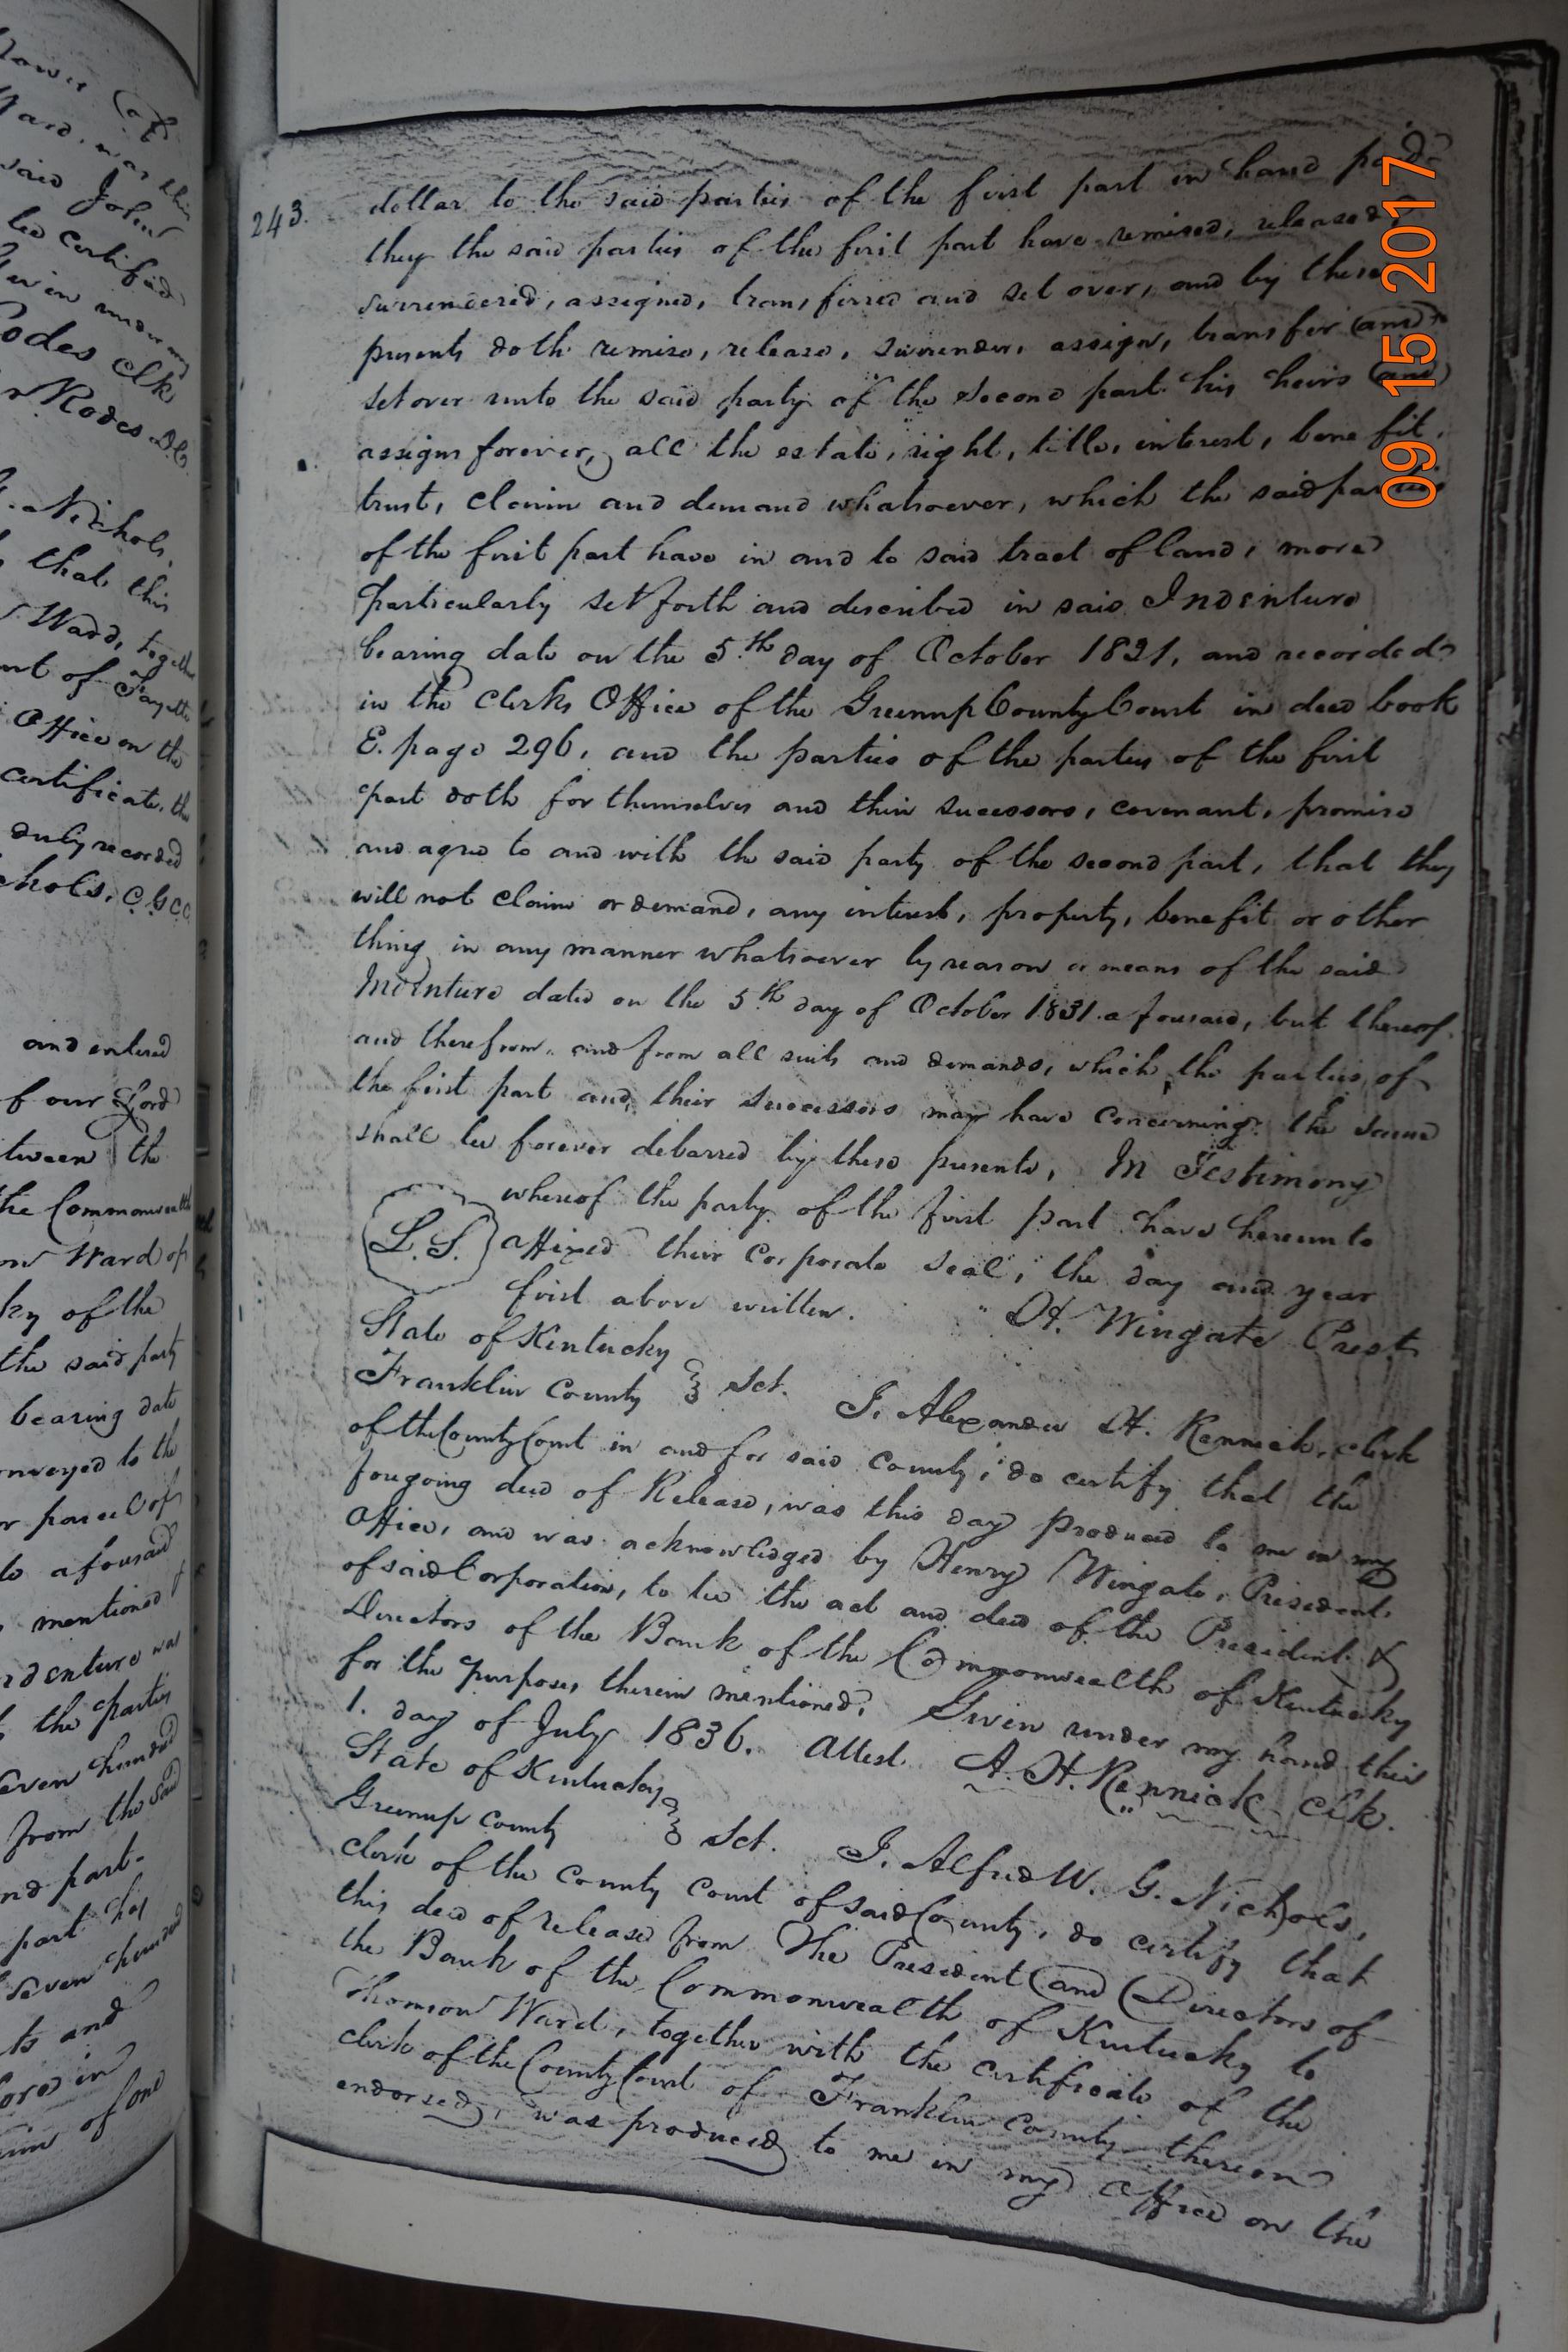 243.
dollar to the said parties of the first part in hand paid
they the said parties of the first part have remised, released,
surrendered, assigned, transferred and set over, and by these
presents doth remise, release, surrender, assign, transfer and
set over unto the said party of the second part his heirs and
assigns forever, all the estate, right, title, interest, benefit,
trust, claim and demand whatsoever, which the said parties
of the first part have in and to said tract of land, more
particularly set forth and described in said Indenture
bearing date on the 5th day of October 1821, and recorded
in the Clerks Office of the Greenup County Court in deed book
E. page 296, and the parties of the parties of the first
part doth for themselves and their sucessors, covenant, promise
and agree to and with the said party of the second part, that they
will not claim or demand, any interest, property, benefit or other
thing in any manner whatsoever by reason or means of the said
Indenture dated on the 5th day of October 1831 afousaid, but thereof
and therefrom, and from all suits and demands, which the parties of
the first part and their successors may have concerning the same
shall be forever debarred by these presents, In Testimony
whereof the party of the first part have hereunto
L. S. affixed their Corporate Seal, the day and year
first above written. H. Wingate Prest
State of Kentucky
Franklin County Sct. I. Alexander H. Rennick, clerk
of the County Court in and for said County, do certify that the
fougoing deed of Release, was this day produced to me in my
Office, and was acknowledged by Henry Wingate, President
of said Corporation, to be the act and deed of the President &
Directors of the Bank of the Commonwealth of Kentucky
for the purposes therein mentioned, Given under my hand this
1. day of July 1836. Attest A. H. Rennick Clk.
State of Kentucky
Greenup County Sct. I. Alfred W. G. Nichols,
clerk of the County Court of said County, do certify that
this deed of release from The President and Directors of
the Bank of the Commonwealth of Kentucky to
Thomson Ward, together with the certificate of the
clerk of the County Court of Franklin County thereon
endorsed, was produced to me in my Office on the
said John
be certified
Given under my
Rodes Clk
Rodes D.C.
Nichols,
that this
Ward, together
of Fayette
Office on the
certificate, the
duly recorded
C.G.C.C.
and entered
of our Lord
the
the Commonwealth
Ward of
of the
the said party
bearing date
to the
or parcel of
afousaid
mentioned
was
the parties
hundred
from the said
part.
part has
seven hundred
and
in
of one
09 15 2017